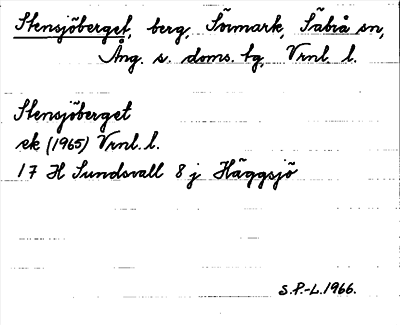 Stensjöberget, berg, Sörmark, Säbrå sn,
Ång. s. doms. tg, Vrnl. l.
Stensjöberget
ek (1965) Vrnl. l.
17 H Sundsvall 8 j Häggsjö
S.P.-L. 1966.